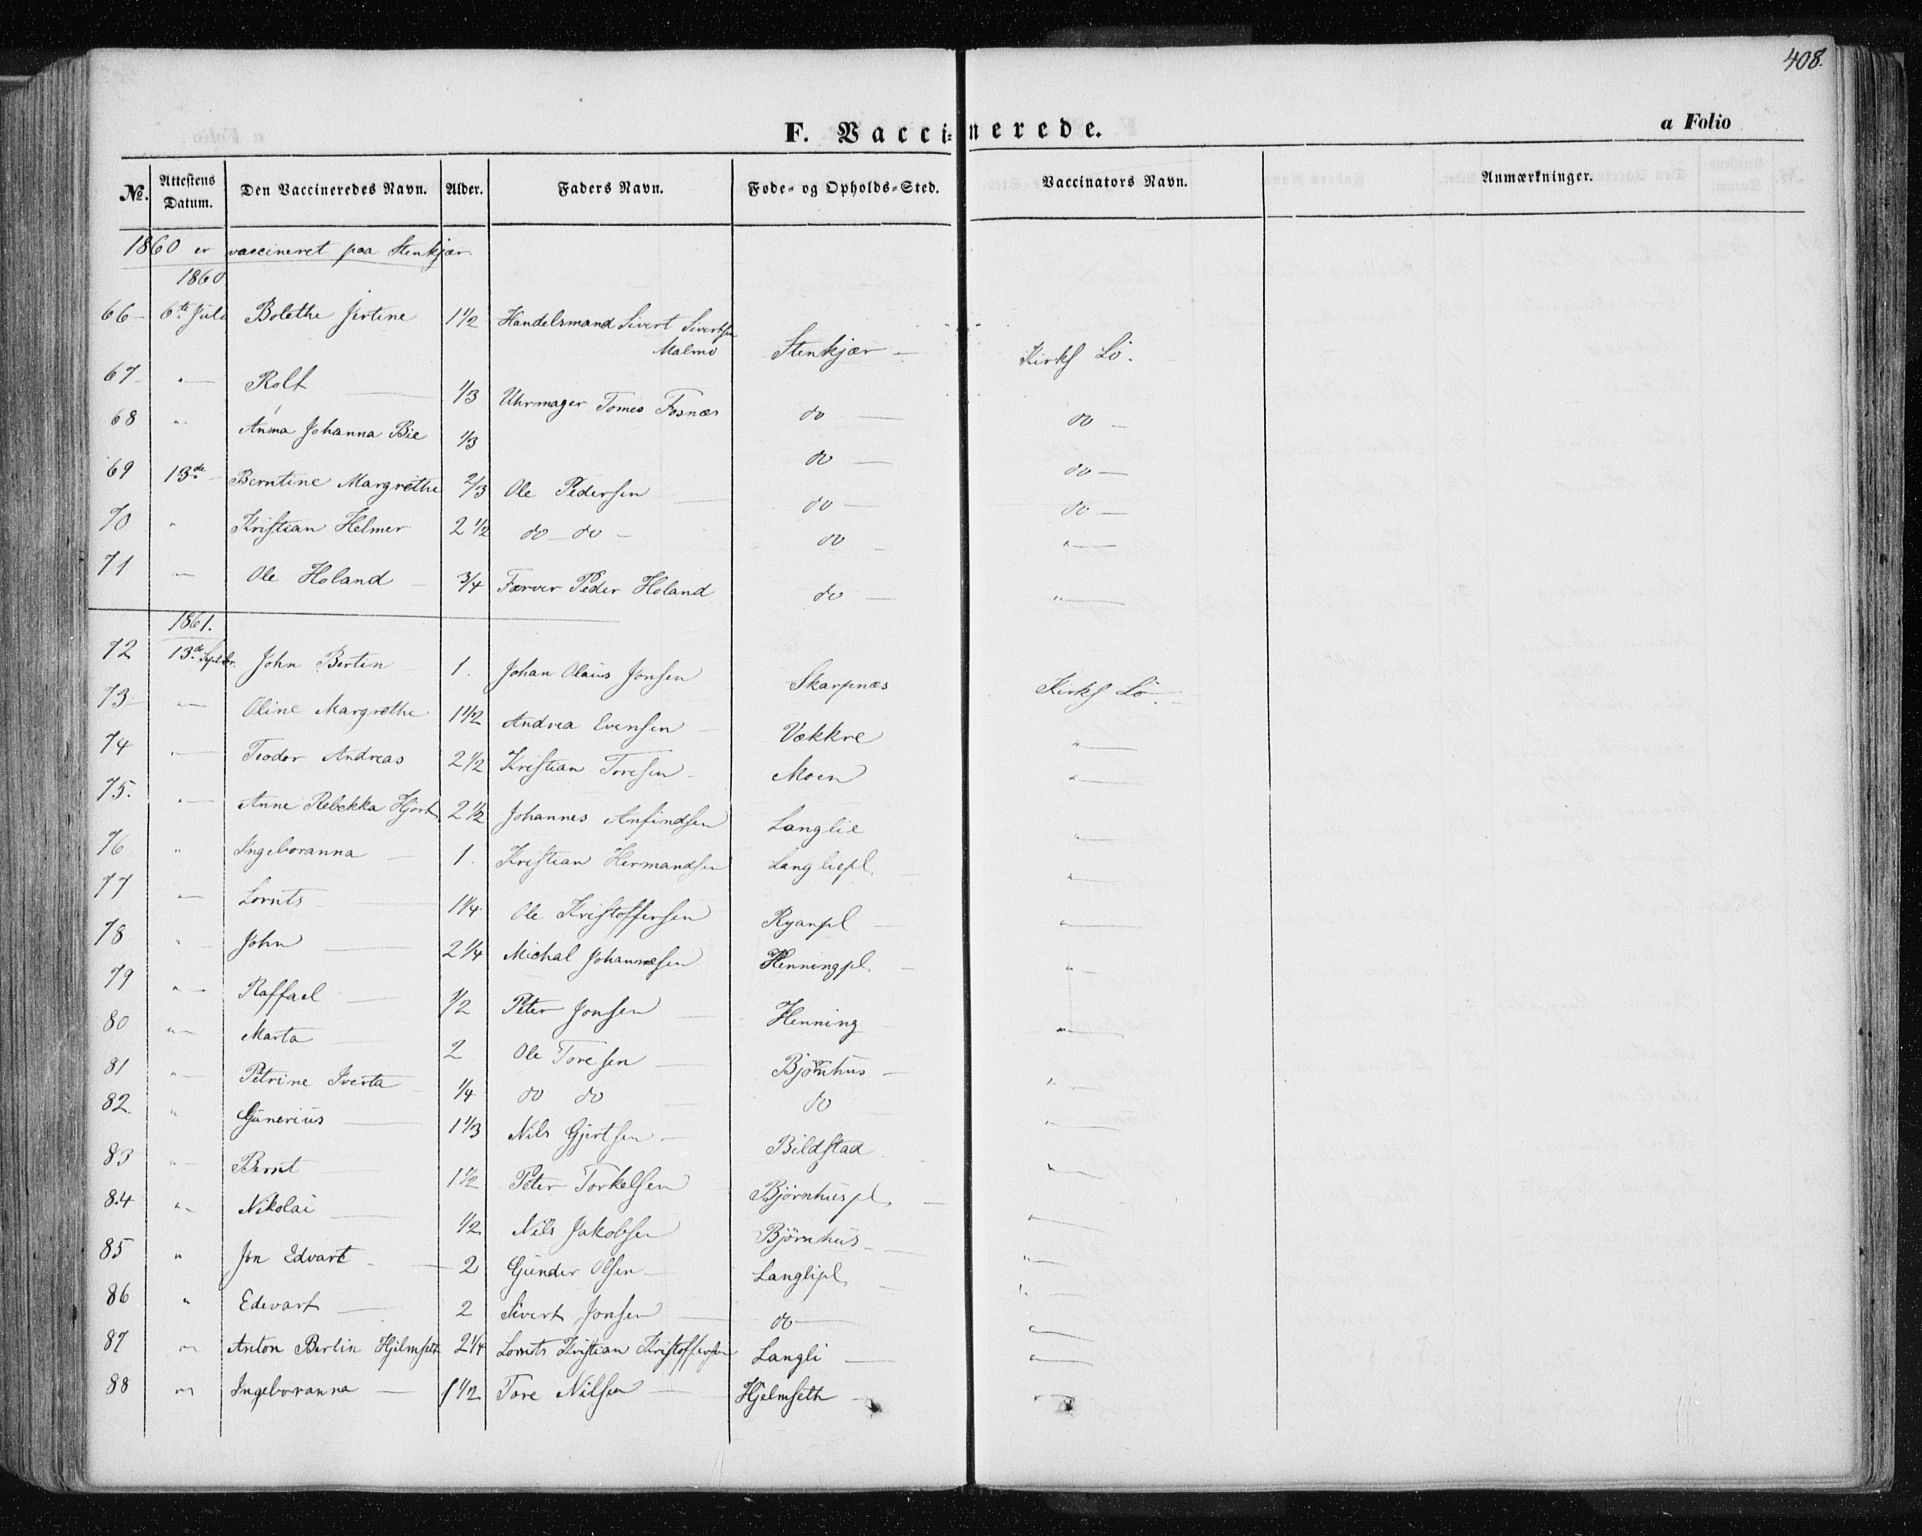 408.
F. Vaccinerede.
a Folio
No. Attestens Datum. Den Vaccineredes Navn. Alder. Faders Navn. Føde- og Opholds-Sted. Vaccinators Navn. Anmærkninger.
1860 er vaccineret paa Stenkjær.
1860
66 6te Juli Bolethe Jertine 1 1/2 Handelsmand Sivert Sivertsen Malmo Stenkjær Kirks Lö.
67 " Rolf 1/3 Uhrmager Tomes Fosnæs do do
68 " Anna Johanna Bie 1/3 do do
69 13de Berntine Margrethe 2/3 Ole Pedersen do do
70 " Kristian Helmer 2 1/2 do do do "
71 " Ole Holand 3/4 Farver Peder Holand do "
1861.
72 13de Septbr. John Bertin 1. Johan Olaus Jonsen Skarpnæs Kirks Lö.
73 " Oline Margrethe 1 1/2 Andrea Evensen Vækkre "
74 " Teodor Andreas 2 1/2 Kristian Toresen Moen "
75. " Anne Rebekka Hjort 2 1/2 Johannes Anfindsen Langlie "
76 " Ingeboranna 1. Kristian Hermandsen Langliepl. "
77 " Lornts 1 1/4 Ole Kristoffersen Ryanpl "
78 " John 2 1/4 Michal Johannesen Henningpl. "
79 " Raffael 1/2 Peter Jonsen Henning "
80 " Marta 2 Ole Toresen Bjørnhus "
81 " Petrine Iverta 1/4 do do do "
82. " Gunerius 1 1/3 Nils Gjertsen Bildstad "
83 " Bernt 1 1/2 Peter Torkelsen Bjørnhuspl. "
84 " Nikolai 1/2 Nils Jakobsen Bjørnhus "
85 " Jon Edvart 2 Gunder Olsen Langlipl. "
86 " Edevart 2 Sivert Jonsen do "
87 " Anton Berlin Hjelmseth 2 1/4 Lornts Kristian Kristoffersen Langli "
88 " Ingeboranna 1 1/2 Tore Nilsen Hjelmseth "